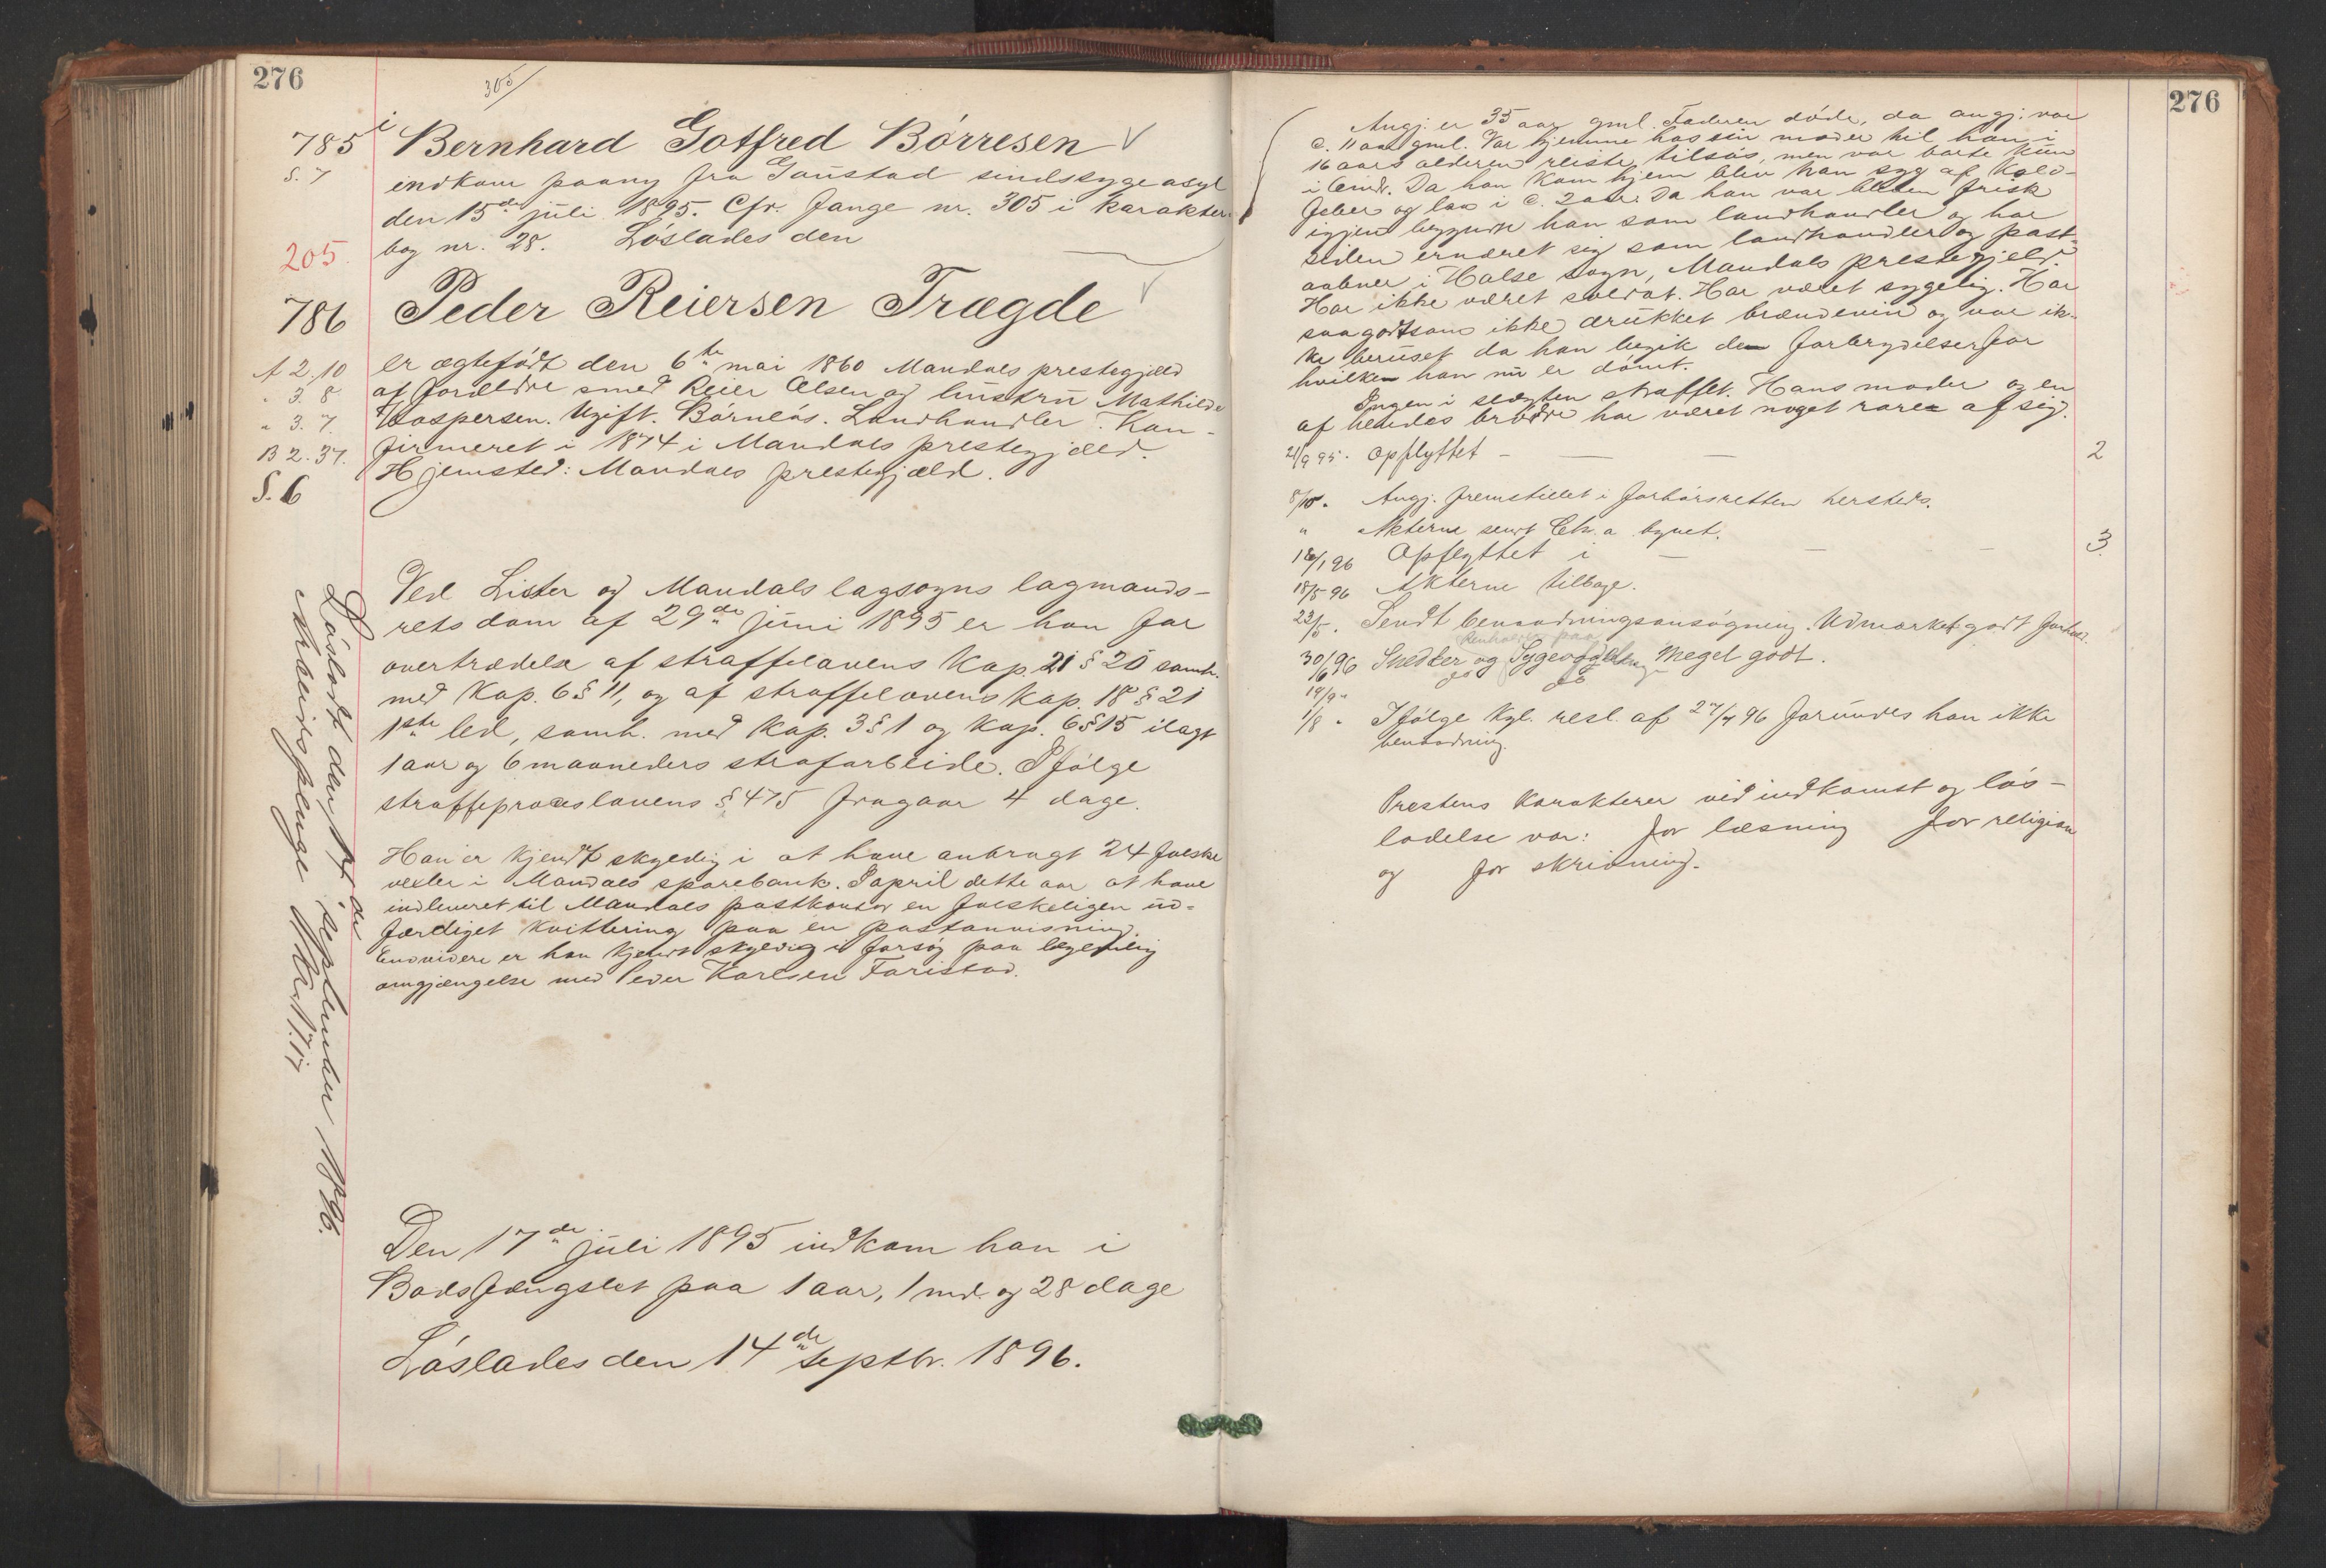 276
305/
785
i Bernhard Gotfred Börresen
S. 7
indkom paany fra Gaustad sindssygeasyl
den 15de juli 1895. Cfr. fange nr. 305 i karakter-
205.
bog nr. 28. Löslades den
786
Peder Reiersen Trægde
A 2,10
er ægtefödt den 6te mai 1860 Mandals prestegjæld
" 3. 8
af forældre smed Reier Olsen og hustru Mathilde
" 3. 7.
Kaspersen. Ugift. Börnlös. Landhandler. Kon-
B 2. 37.
firmeret i 1874 i Mandals prestegjæld.
S. 6
Hjemsted: Mandals prestegjæld.
Ved Lister og Mandals lagsogns lagmands-
rets dom af 29de juni 1895 er han for
overtrædelse af straffelovens Kap. 21 § 20 samh.
med Kap. 6 § 11, og af straffelovens Kap. 18 § 21
1ste led, samh. med Kap. 3 § 1 og Kap. 6 § 15 ilagt
1 aar og 6 maaneders strafarbeide. Ifölge
straffeproceslovens § 475 fragaar 4 dage.
Han er kjendt skyldig i at have anbragt 24 falske
vexler i Mandals sparebank. I april dette aar at have
indleveret til Mandals postkontor en falskeligen ud-
færdiget kvittering paa en postanvisning.
Endvidere er han kjendt skyldig i forsög paa legemlig
omgjængelse med Peder Karlsen Faristad.
Den 17de juli 1895 indkom han i
Bodsfængslet paa 1 aar, 1 md. og 28 dage
Löslades den 14de septbr. 1896.
Lösladt den 14de september 1896.
Arbeidspenge
276
Angj. er 35 aar gml. Faderen döde, da angj. var
c. 11 aar gml. Var hjemme hos sin moder til han i
16 aars alderen reiste tilsös, men var borte kun
i 6 mdr. Da han kom hjem blev han syg af Kold-
feber og laa i c. 2 aar. Da han var bleven frisk
igjen begyndte han som landhandler og har
siden ernæret sig som landhandler og post-
aabner i Halse sogn, Mandals prestegjeld.
Har ikke været soldat. Har været sygelig. Har
saagodtsom ikke drukket brændevin og var ik-
ke beruset da han begik den forbrydelser for
hvilken han nu er dömt.
Ingen i slægten straffet. Hans moder og en
af hendes brödre har været noget rare af sig.
21/9 95. Opflyttet – — — 2
8/10. Angj. fremstillet i forhörsretten hersteds.
" Akterne sendt Chr.a bynet.
18/1 96 Opflyttet i — — – 3
18/5 96 Akterne tilbage.
23/5. Sendt benaadningsansögning. Udmærket godt forhold.
30/6 96 Snedker og Meget godt.
14/9 " do do
1/8 " Ifölge Kgl. resl. af 27/7 96 forundes han ikke
benaadning.
Prestens Karakterer ved indkomst og lös-
ladelse var: for læsning for religion
og for skrivning.